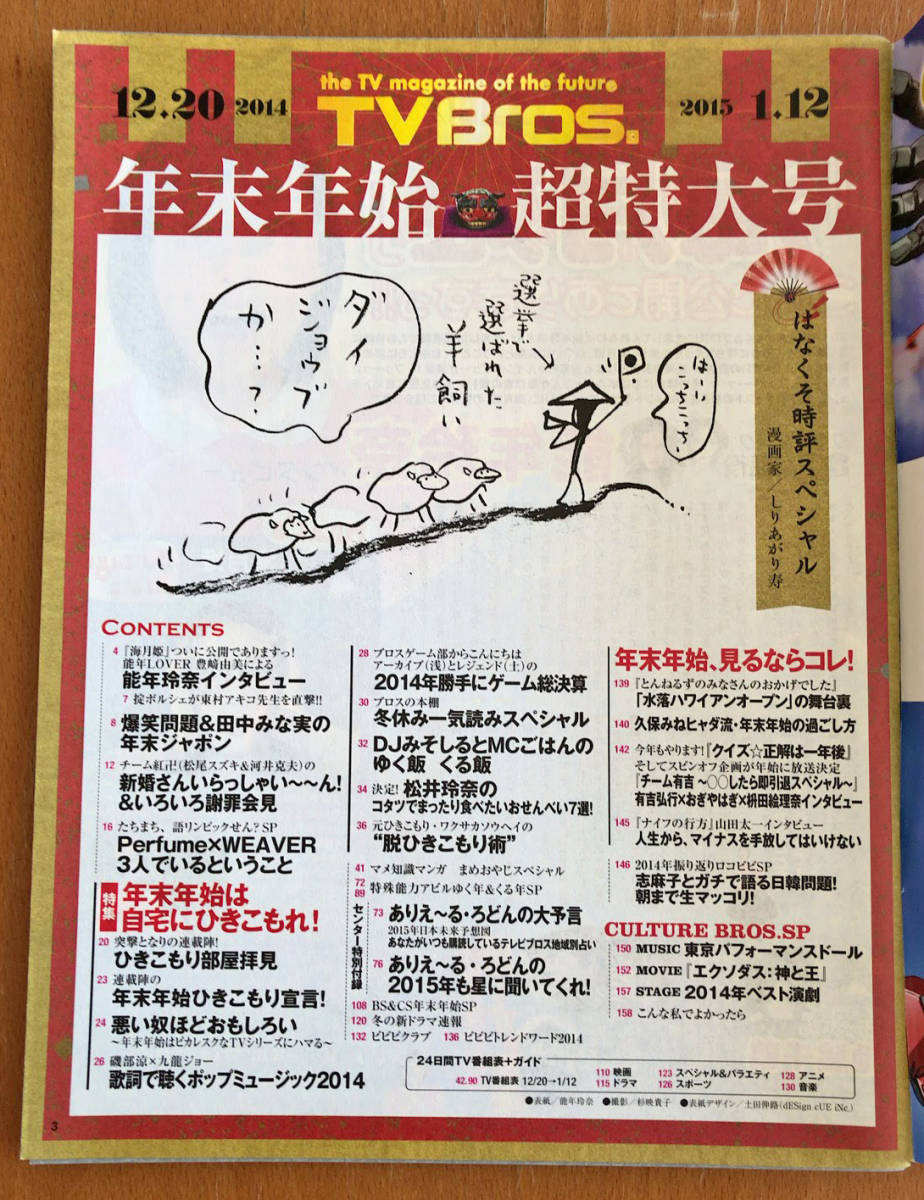 12.20 2014
the TV magazine of the future
TVBros.
2015 1.12
年末年始 超特大号
はなくそ時評スペシャル
漫画家／しりあがり寿
はーい
こっちこっち
選挙で
選ばれた
羊飼い
ダイ
ジョウブ
か…？
CONTENTS
4 『海月姫』ついに公開でありますっ!
能年LOVER 豊﨑由美による
能年玲奈インタビュー
7 掟ポルシェが東村アキコ先生を直撃!!
8 爆笑問題&田中みな実の
年末ジャポン
12 チーム紅卍(松尾スズキ&河井克夫)の
新婚さんいらっしゃい〜〜ん!
&いろいろ謝罪会見
16 たちまち、語リンピックせん?SP
Perfume×WEAVER
3人でいるということ
特集
年末年始は
自宅にひきこもれ!
20 突撃となりの連載陣!
ひきこもり部屋拝見
23 連載陣の
年末年始ひきこもり宣言!
24 悪い奴ほどおもしろい
〜年末年始はピカレスクなTVシリーズにハマる〜
26 磯部涼×九龍ジョー
歌詞で聴くポップミュージック2014
28 ブロスゲーム部からこんにちは
アーカイブ(浅)とレジェンド(土)の
2014年勝手にゲーム総決算
30 ブロスの本棚
冬休み一気読みスペシャル
32 DJみそしるとMCごはんの
ゆく飯 くる飯
34 決定! 松井玲奈の
コタツでまったり食べたいおせんべい7選!
36 元ひきこもり・ワクサカソウヘイの
“脱ひきこもり術”
41 マメ知識マンガ まめおやじスペシャル
72
89 特殊能力アビルゆく年&くる年SP
センター特別付録
73 ありえ〜る・ろどんの大予言
2015年日本未来予想図
あなたがいつも購読しているテレビブロス地域別占い
76 ありえ〜る・ろどんの
2015年も星に聞いてくれ!
108 BS&CS年末年始SP
120 冬の新ドラマ速報
132 ピピピクラブ 136 ピピピトレンドワード2014
年末年始、見るならコレ!
139 『とんねるずのみなさんのおかげでした』
「水落ハワイアンオープン」の舞台裏
140 久保みねヒャダ流・年末年始の過ごし方
142 今年もやります!『クイズ☆正解は一年後』
そしてスピンオフ企画が年始に放送決定
『チーム有吉 〜○○したら即引退スペシャル〜』
有吉弘行×おぎやはぎ×枡田絵理奈インタビュー
145 『ナイフの行方』山田太一インタビュー
人生から、マイナスを手放してはいけない
146 2014年振り返りロコピピSP
志麻子とガチで語る日韓問題!
朝まで生マッコリ!
CULTURE BROS.SP
150 MUSIC 東京パフォーマンスドール
152 MOVIE 『エクソダス:神と王』
157 STAGE 2014年ベスト演劇
158 こんな私でよかったら
24日間TV番組表+ガイド
42.90 TV番組表 12/20→1/12
110 映画
115 ドラマ
123 スペシャル&バラエティ
126 スポーツ
128 アニメ
130 音楽
●表紙／能年玲奈 ●撮影／杉映貴子 ●表紙デザイン／土田伸路(dESign cUE iNc.)
3